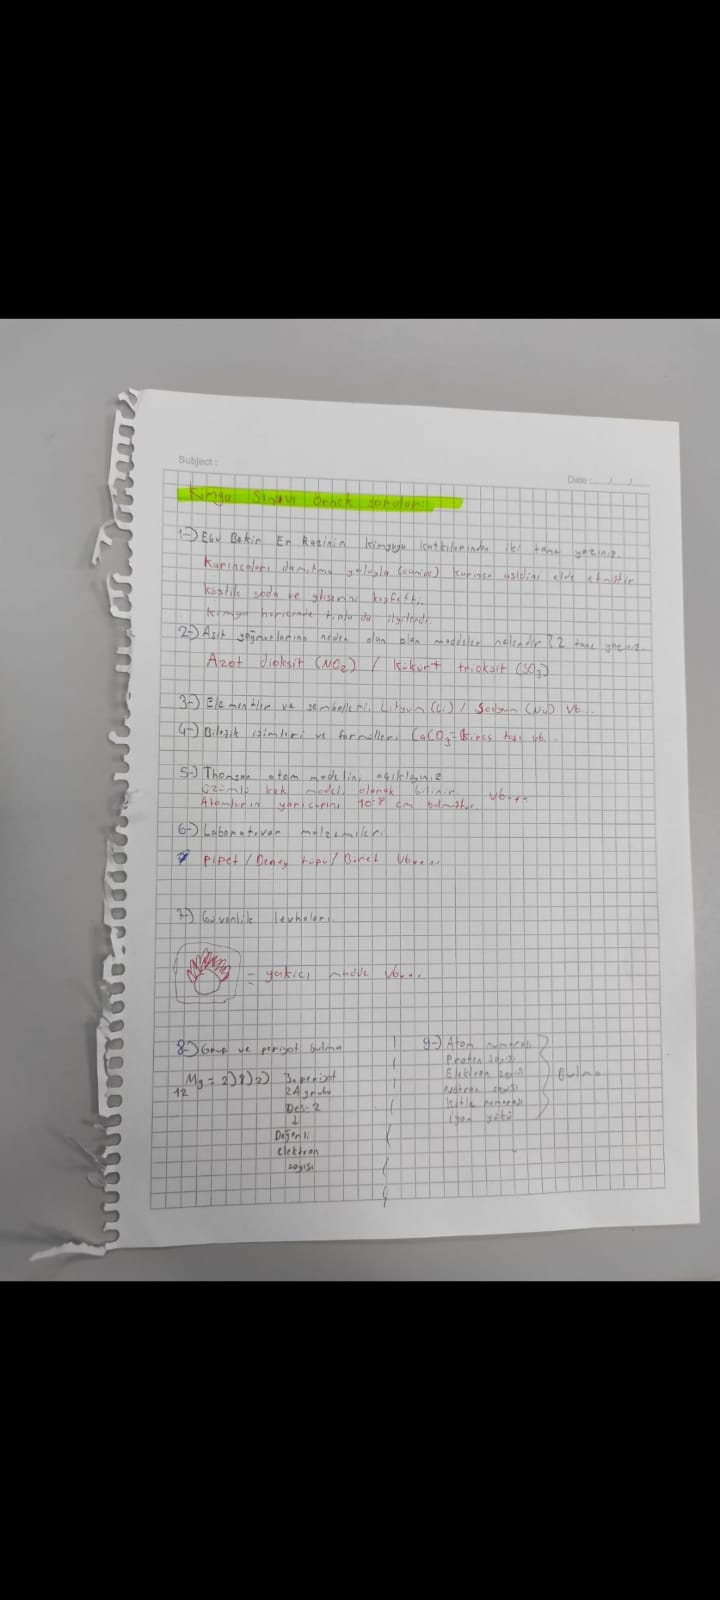 Subject:
Date: __/__/__
Kimya Sınavı örnek soruları:
1-) Ebu Bekir Er Razinin kimyaya katkılarından iki tane yazınız.
Karıncaları damıtma yoluyla karınca asidini elde etmiştir
kostik soda ve gliserini keşfetti.
Kimya haricinde tıpla da ilgilendi.
2-) Asit yağmurlarına neden olan olan maddeler nelerdir? 2 tane yazınız.
Azot dioksit (NO2) / Kükürt trioksit (SO3)
3-) Elementler ve sembolleri. Lityum (Li) / Sodyum (Na) vb...
4-) Bileşik isimleri ve formülleri CaCO3= Kireç taşı vb..
5-) Thomson atom modelini açıklayınız
Üzümlü kek modeli olarak bilinir. vb...
Atomların yarıçapını 10-8 cm bulmuştur.
6-) Laboratuvar malzemeleri.
Pipet / Deney tüpü / Büret vb....
7-) Güvenlik levhaları.
= yakıcı madde vb....
8-) Grup ve periyot bulma
12Mg = 2)8)2) 3. periyot
2A grubu
Des-2
↓
Değerli
elektron
sayısı
9-) Atom numarası
Proton sayısı
Elektron sayısı
Nötron sayısı
Kütle numarası
iyon yükü
Bulma